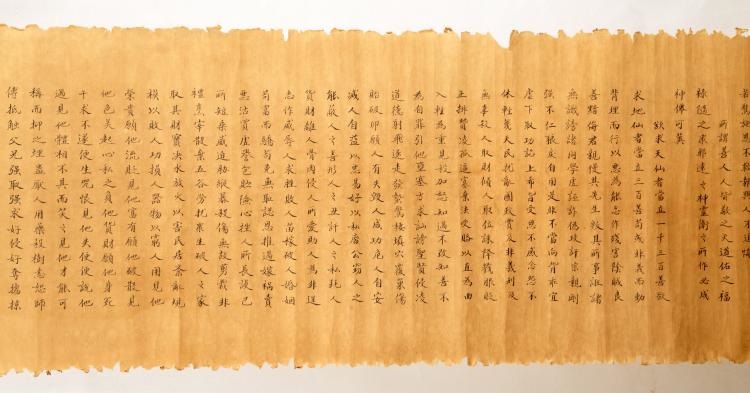 若驚施恩不求報與人不追悔
所謂善人人皆敬之天道佑之福
祿隨之眾邪遠之神靈衛之所作必成
神僊可冀
欲求天仙者當立一千三百善欲
求地仙者當立三百善苟或非義而動
背理而行以惡為能忍作殘害陰賊良
善暗侮君親慢其先生叛其所事誑諸
無識謗諸同學虛誣詐偽攻訐宗親剛
強不仁狠戾自用是非不當向背乖宜
虐下取功諂上希旨受恩不感念怨不
休輕蔑天民擾亂國政賞及非義刑及
無辜殺人取財傾人取位誅降戮服貶
正排賢凌孤逼寡棄法受賂以直為曲
入輕為重見殺加怒知過不改知善不
為自罪引他壅塞方術訕謗聖賢侵凌
道德射飛逐走發蟄驚棲填穴覆巢傷
胎破卵願人有失毀人成功危人自安
減人自益以惡易好以私廢公竊人之
能蔽人之善形人之丑訐人之私耗人
貨財離人骨肉侵人所愛助人為非逞
志作威辱人求勝敗人苗稼破人婚姻
苟富而驕苟免無恥認恩推過嫁禍賣
惡沽買虛譽包貯險心挫人所長護己
所短乘威迫脅縱暴殺傷無故剪裁非
禮烹宰散棄五谷勞擾眾生破人之家
取其財寶決水放火以害民居紊亂規
模以敗人功損人器物以窮人用見他
榮貴願他流貶見他富有願他破散見
他色美起心私之負他貨財願他身死
干求不遂便生咒恨見他失便便說他
過見他體相不具而笑之見他才能可
稱而抑之埋蠱厭人用藥殺樹恚怒師
傅抵觸父兄強取強求好侵好奪擄掠